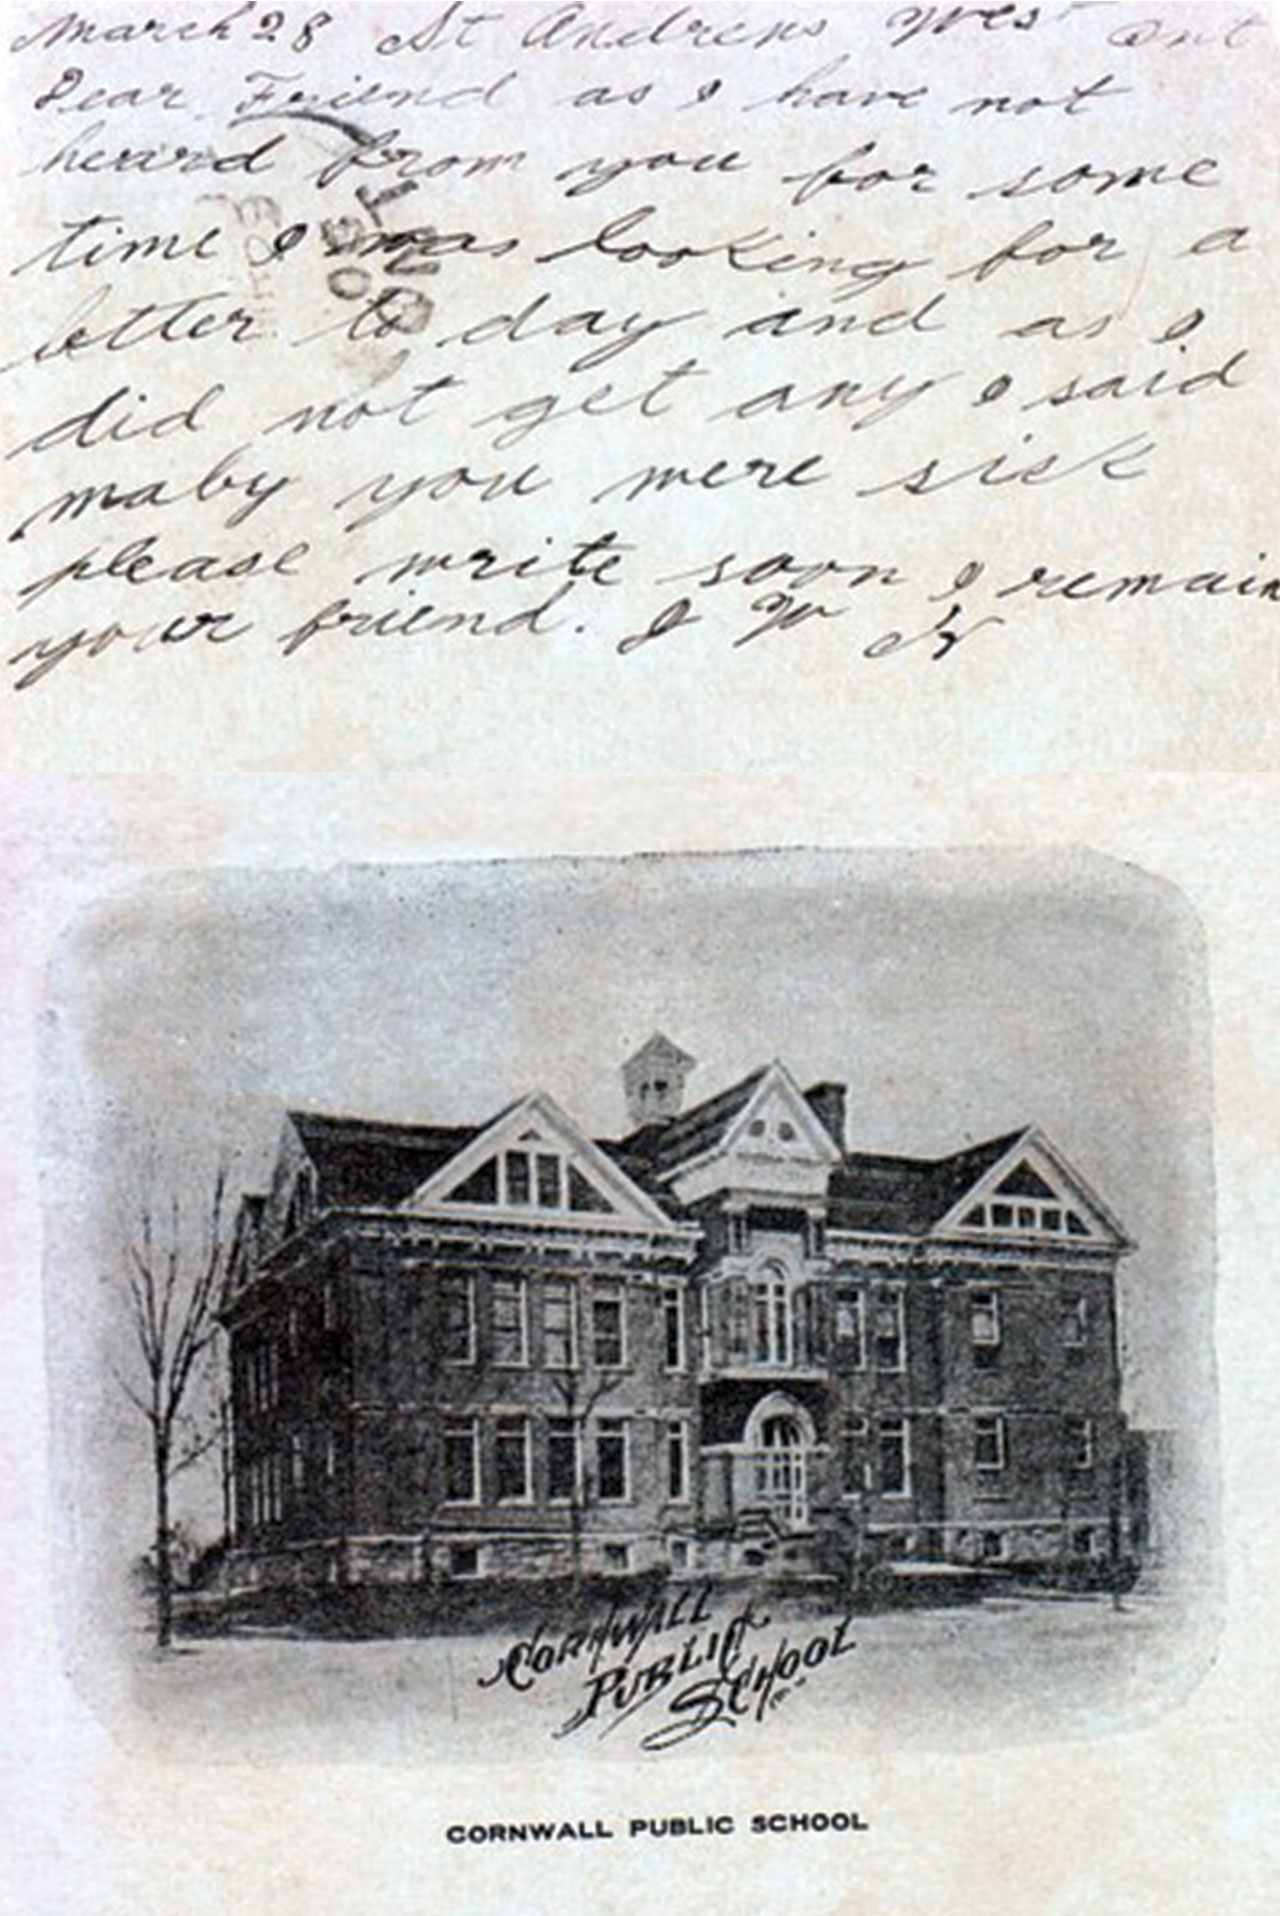 March 28 St Andrews West Ont
Dear Friend as I have not
heard from you for some
time I was looking for a
letter to day and as I
did not get any I said
maby you were sick
please write soon I remain
your friend. J W
CORNWALL
PUBLIC
SCHOOL
CORNWALL PUBLIC SCHOOL